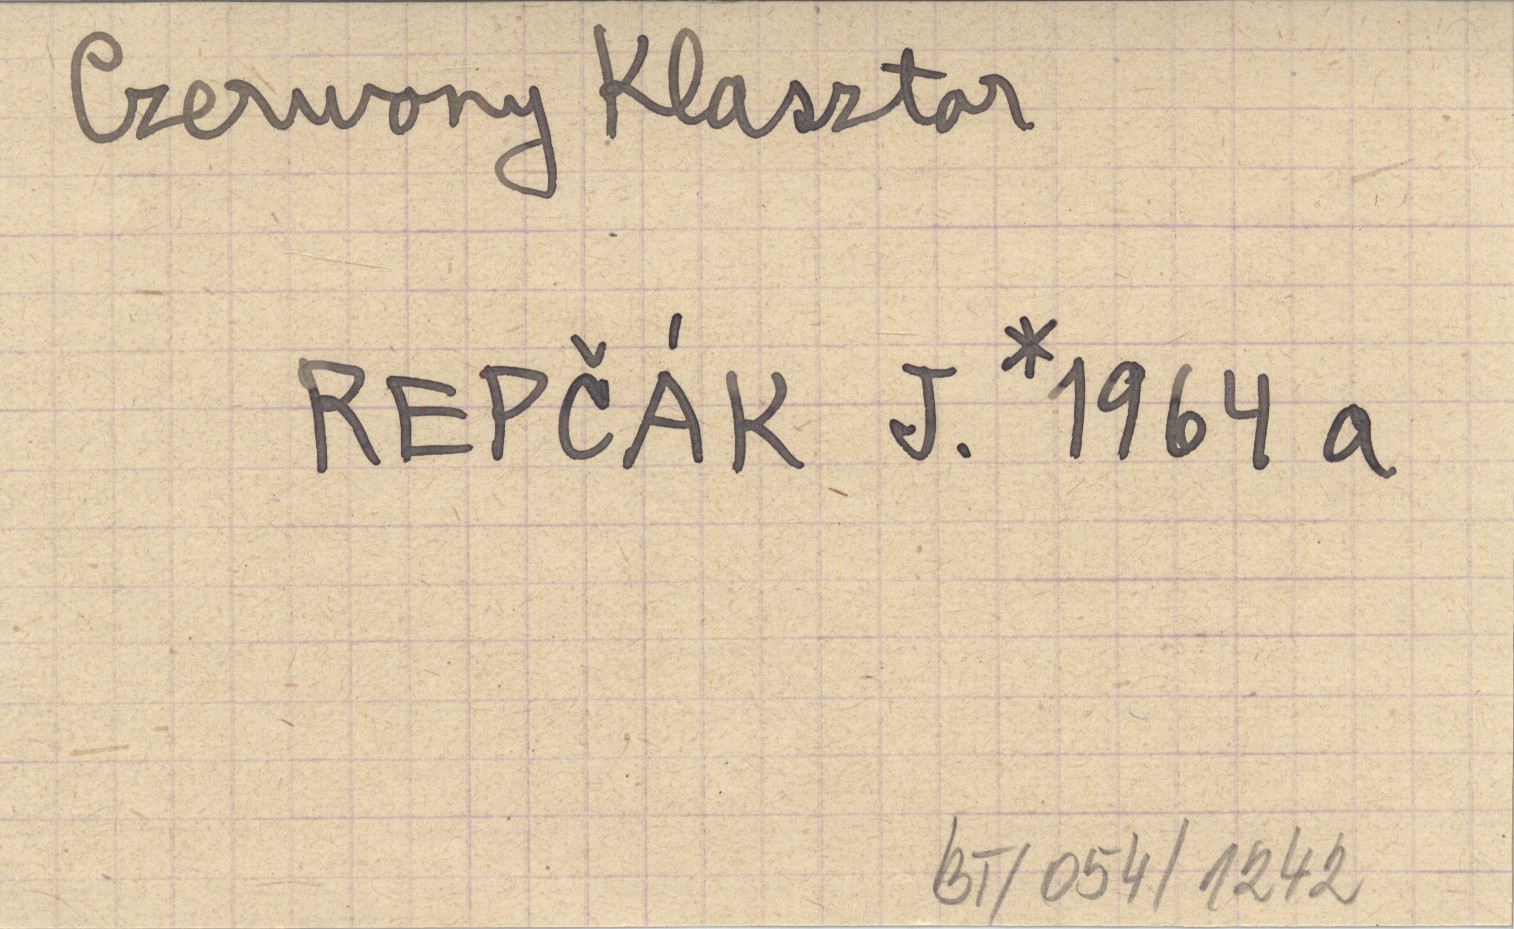 Czerwony Klasztor
REPČÁK J.*1964 a
BT/054/1242